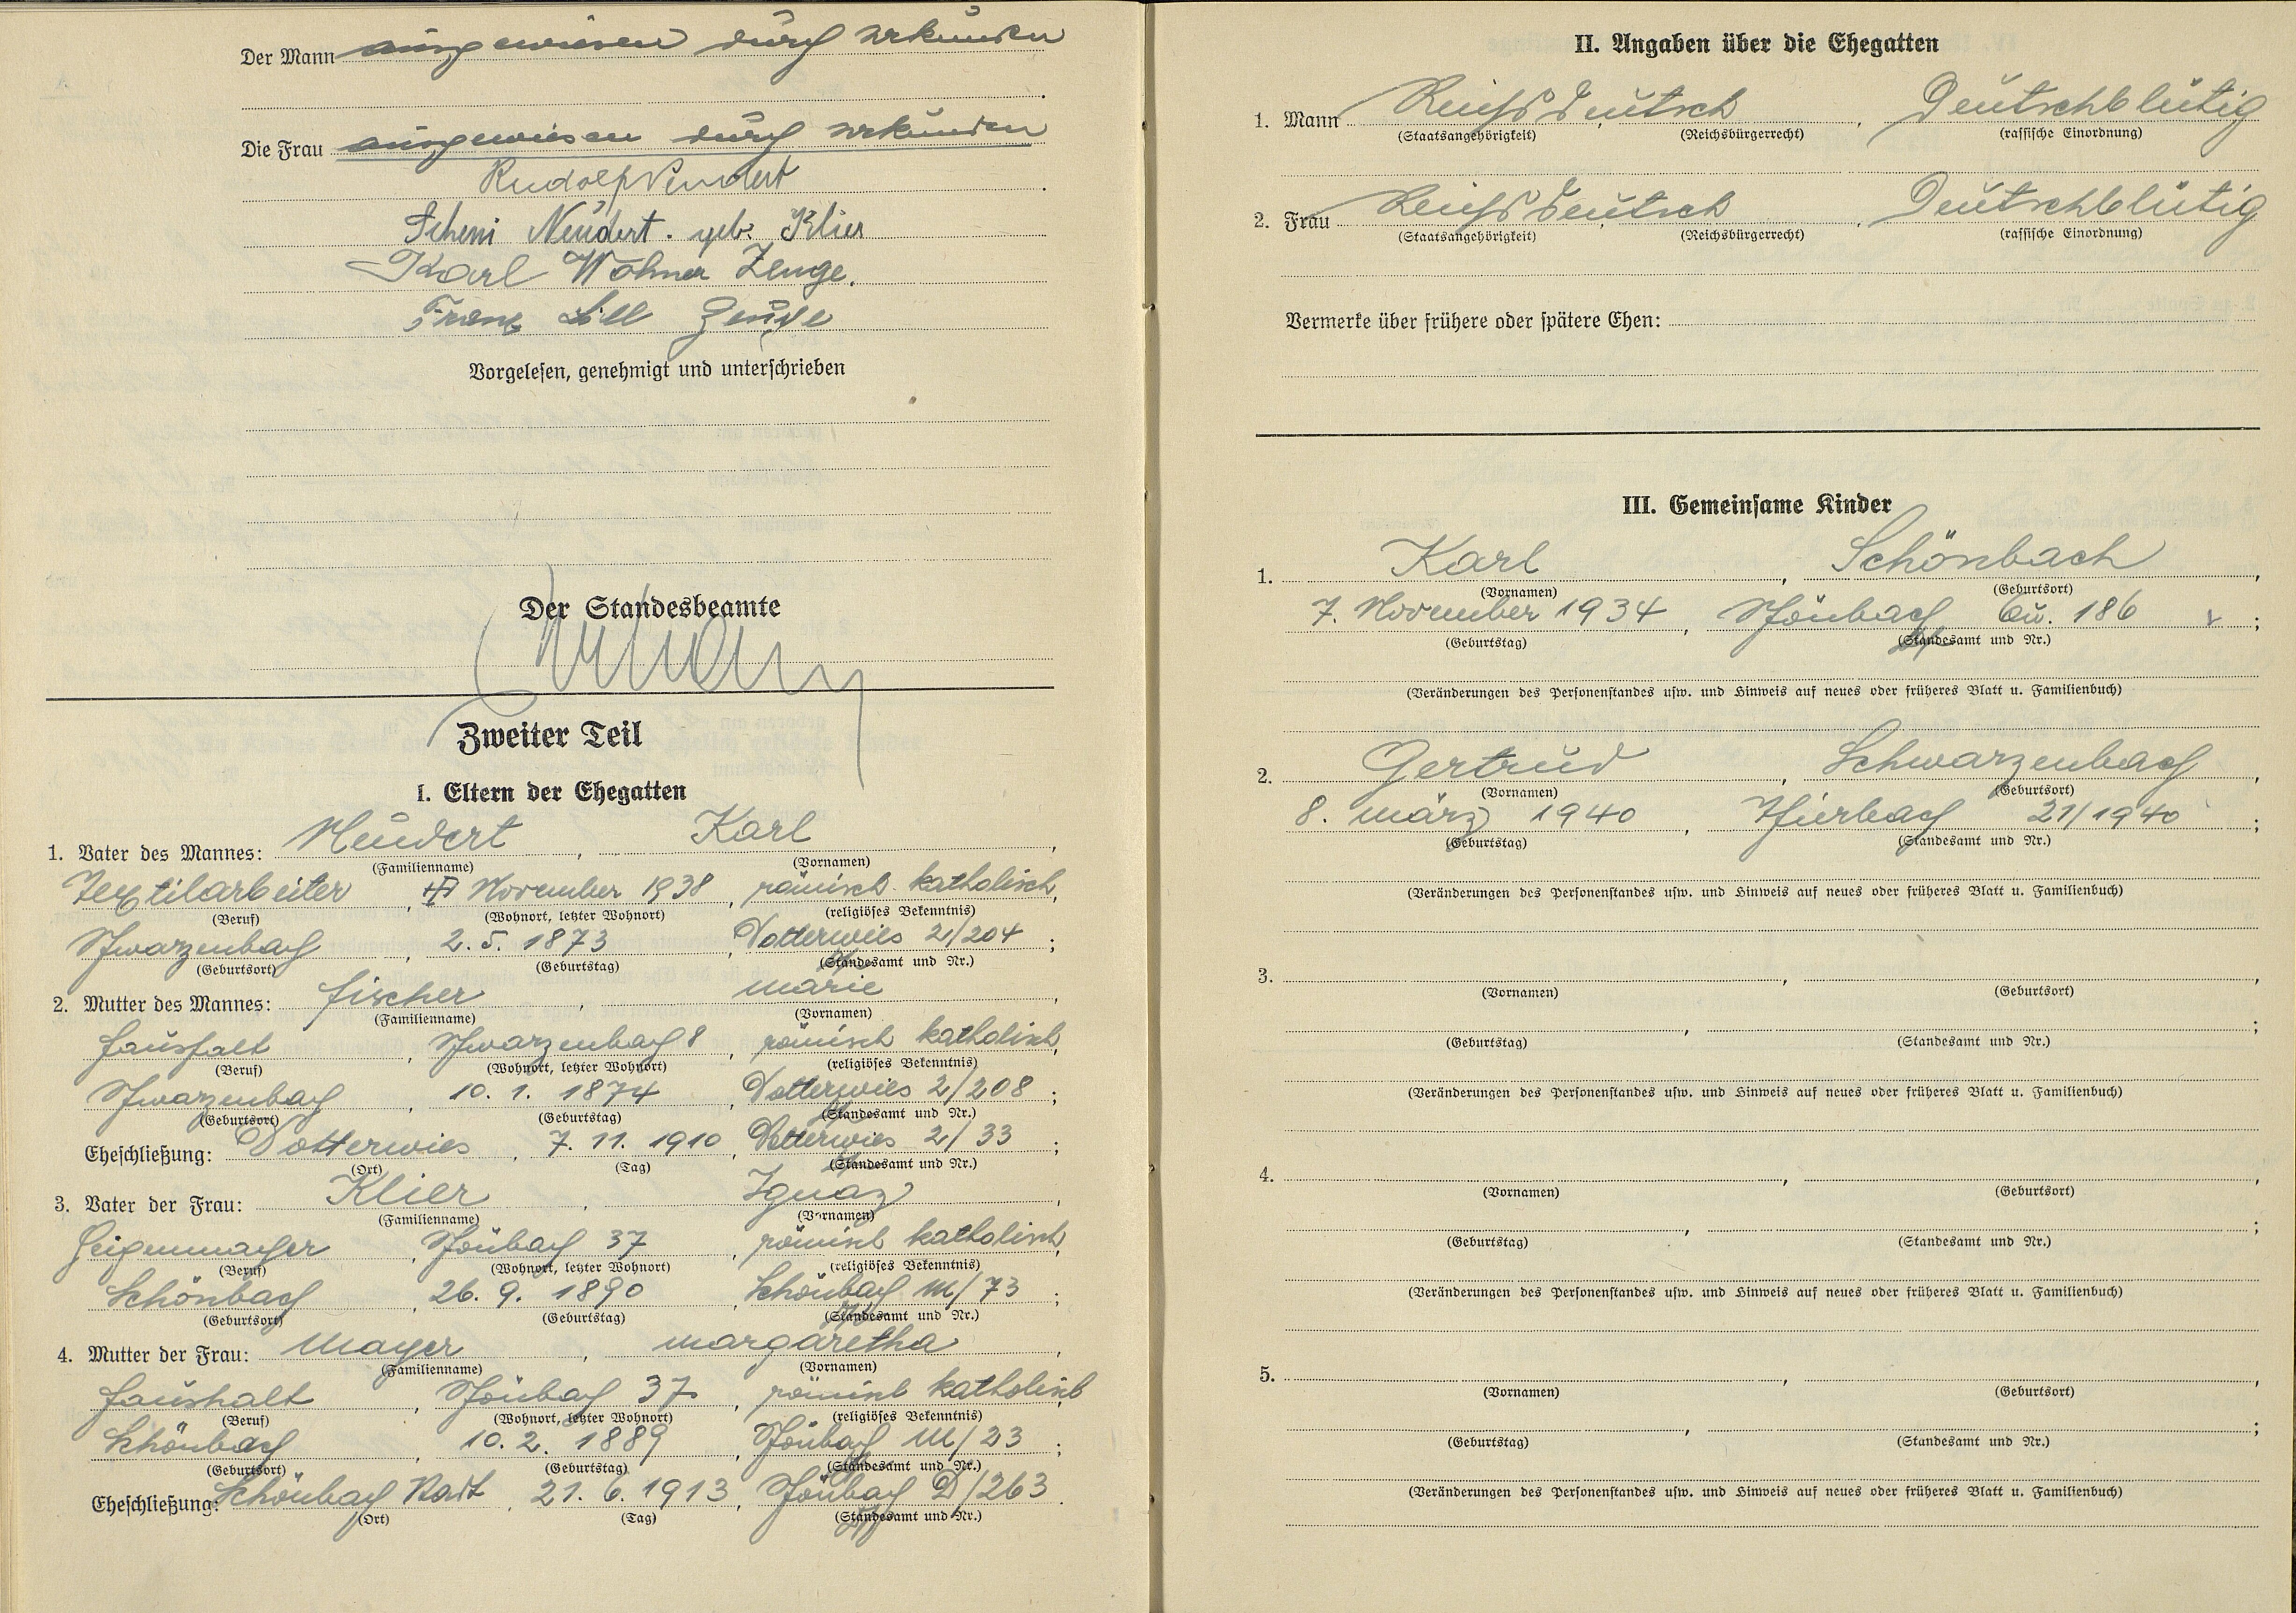 Der Mann ausgewiesen durch Urkunden
Die Frau ausgewiesen durch Urkunden
Rudolf Neudert
Neudert. geb. Klier
Karl Wöhner Zeuge.
Franz Lill Zeuge
Vorgelesen, genehmigt und unterschrieben
Der Standesbeamte
Zweiter Teil
I. Eltern der Ehegatten
1. Vater des Mannes: Neudert, Karl,
(Familienname) (Vornamen)
Textilarbeiter, November 1938, römisch katholisch,
(Beruf) (Wohnort, letzter Wohnort) (religiöses Bekenntnis)
Schwarzenbach, 2. 5. 1873, Dotterwies 2/204;
(Geburtsort) (Geburtstag) (Standesamt und Nr.)
2. Mutter des Mannes: Fischer, Marie,
(Familienname) (Vornamen)
Haushalt, Schwarzenbach 8, römisch katholisch,
(Beruf) (Wohnort, letzter Wohnort) (religiöses Bekenntnis)
Schwarzenbach, 10. 1. 1874, Dotterwies 2/208;
(Geburtsort) (Geburtstag) (Standesamt und Nr.)
Eheschließung: Dotterwies, 7. 11. 1910, Dotterwies 2/33;
(Ort) (Tag) (Standesamt und Nr.)
3. Vater der Frau: Klier, Ignaz,
(Familienname) (Vornamen)
Geigenmacher, Schönbach 37, römisch katholisch,
(Beruf) (Wohnort, letzter Wohnort) (religiöses Bekenntnis)
Schönbach, 26. 9. 1890, Schönbach M/73;
(Geburtsort) (Geburtstag) (Standesamt und Nr.)
4. Mutter der Frau: Mayer, Margaretha,
(Familienname) (Vornamen)
Haushalt, Schönbach 37, römisch katholisch,
(Beruf) (Wohnort, letzter Wohnort) (religiöses Bekenntnis)
Schönbach, 10. 2. 1889, Schönbach M/23;
(Geburtsort) (Geburtstag) (Standesamt und Nr.)
Eheschließung: Schönbach Stadt, 21. 6. 1913, Schönbach D/263.
(Ort) (Tag) (Standesamt und Nr.)
II. Angaben über die Ehegatten
1. Mann Reichsdeutsch, Deutschblütig
(Staatsangehörigkeit) (Reichsbürgerrecht) (rassische Einordnung)
2. Frau Reichsdeutsch, Deutschblütig
(Staatsangehörigkeit) (Reichsbürgerrecht) (rassische Einordnung)
Vermerke über frühere oder spätere Ehen:
III. Gemeinsame Kinder
1. Karl, Schönbach,
(Vornamen) (Geburtsort)
7. November 1934, Schönbach 186;
(Geburtstag) (Standesamt und Nr.)
(Veränderungen des Personenstandes usw. und Hinweis auf neues oder früheres Blatt u. Familienbuch)
2. Gertrud, Schwarzenbach,
(Vornamen) (Geburtsort)
8. März 1940, 21/1940;
(Geburtstag) (Standesamt und Nr.)
(Veränderungen des Personenstandes usw. und Hinweis auf neues oder früheres Blatt u. Familienbuch)
3. , ,
(Vornamen) (Geburtsort)
, ;
(Geburtstag) (Standesamt und Nr.)
(Veränderungen des Personenstandes usw. und Hinweis auf neues oder früheres Blatt u. Familienbuch)
4. , ,
(Vornamen) (Geburtsort)
, ;
(Geburtstag) (Standesamt und Nr.)
(Veränderungen des Personenstandes usw. und Hinweis auf neues oder früheres Blatt u. Familienbuch)
5. , ,
(Vornamen) (Geburtsort)
, ;
(Geburtstag) (Standesamt und Nr.)
(Veränderungen des Personenstandes usw. und Hinweis auf neues oder früheres Blatt u. Familienbuch)